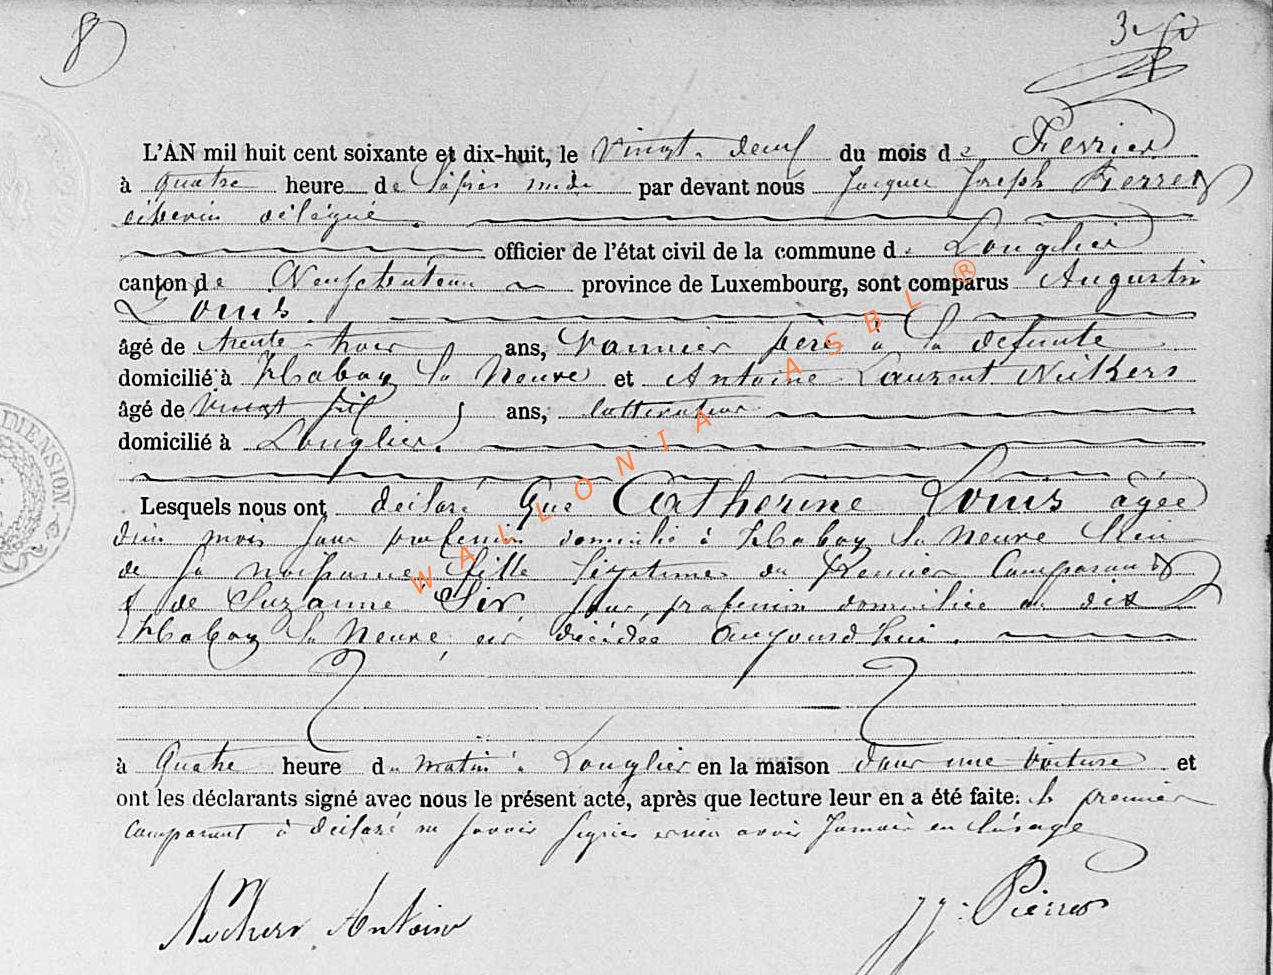 8
3
L'AN mil huit cent soixante et dix-huit, le Vingt-deux du mois de Fevrier
à quatre heure de l'après midi par devant nous Jacques Joseph Pierret
échevin délégué
officier de l'état civil de la commune de Longlier
canton de Neufchateau province de Luxembourg, sont comparus Augustin
Louis.
âgé de trente-trois ans, Vannier père à la defunte
domicilié à Habay la Neuve et Antoine Laurent Nickers
âgé de vingt six ans, cultivateur
domicilié à Longlier.
Lesquels nous ont déclaré que Catherine Louis âgée
d'un mois sans profession domicilié à Habay la Neuve lieu
de sa naissance fille légitime du Premier Comparant &
de Suzanne Sir sans profession domiciliée au dit
Habay la Neuve, est décédée aujourd'hui.
à quatre heure du matin à Longlier en la maison dans une voiture et
ont les déclarants signé avec nous le présent acte, après que lecture leur en a été faite. le premier
comparant à déclaré ne savoir signer avoir Jamais en l'usage
Nickers Antoine
JJ. Pierret
DIMENSION.
WALLONIA ASBL ®